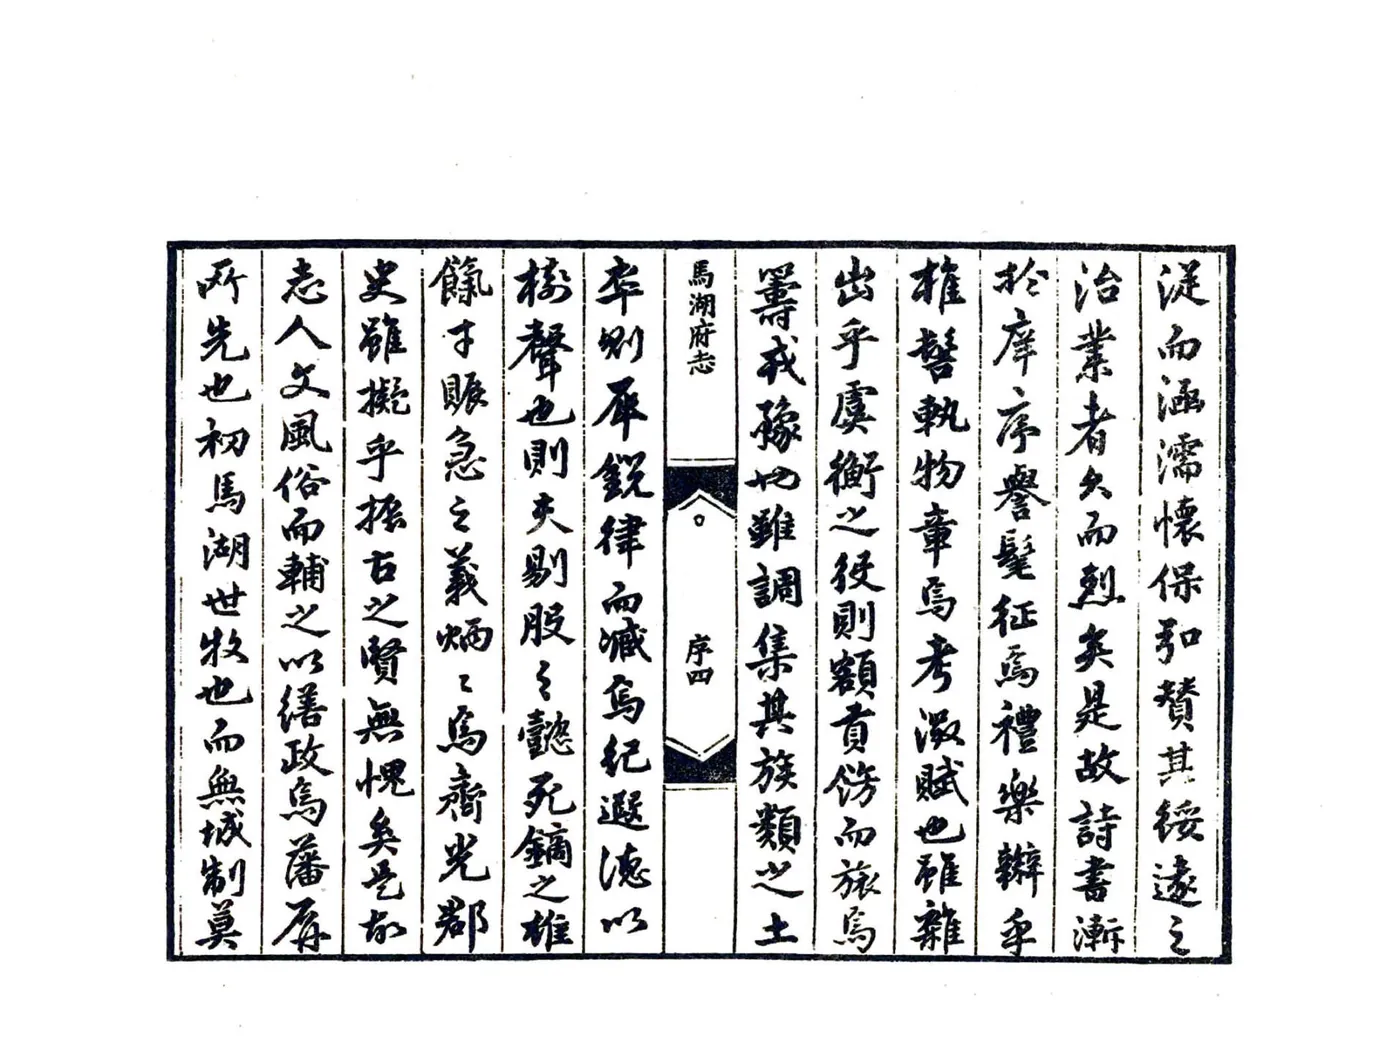 從而涵濡懷保弘贊其綏遠之
治業者久而烈矣是故詩書漸
於庠序譽髦征焉禮樂辦乎
椎髻執物章焉考漑賦也雖雜
出乎虞衡之役則額貢傍而旅焉
籌戎豫也雖調集其族類之土
率則犀銳律而臧焉紀遐德以
樹聲也則夫剔股之懿死鏑之雄
餼才賑急之義炳〻焉齊光郡
史雖擬乎振古之賢無愧矣是故
志人文風俗而輔之以繕政焉藩屏
所先也初馬湖世牧也而無城制莫
馬湖府志
序四